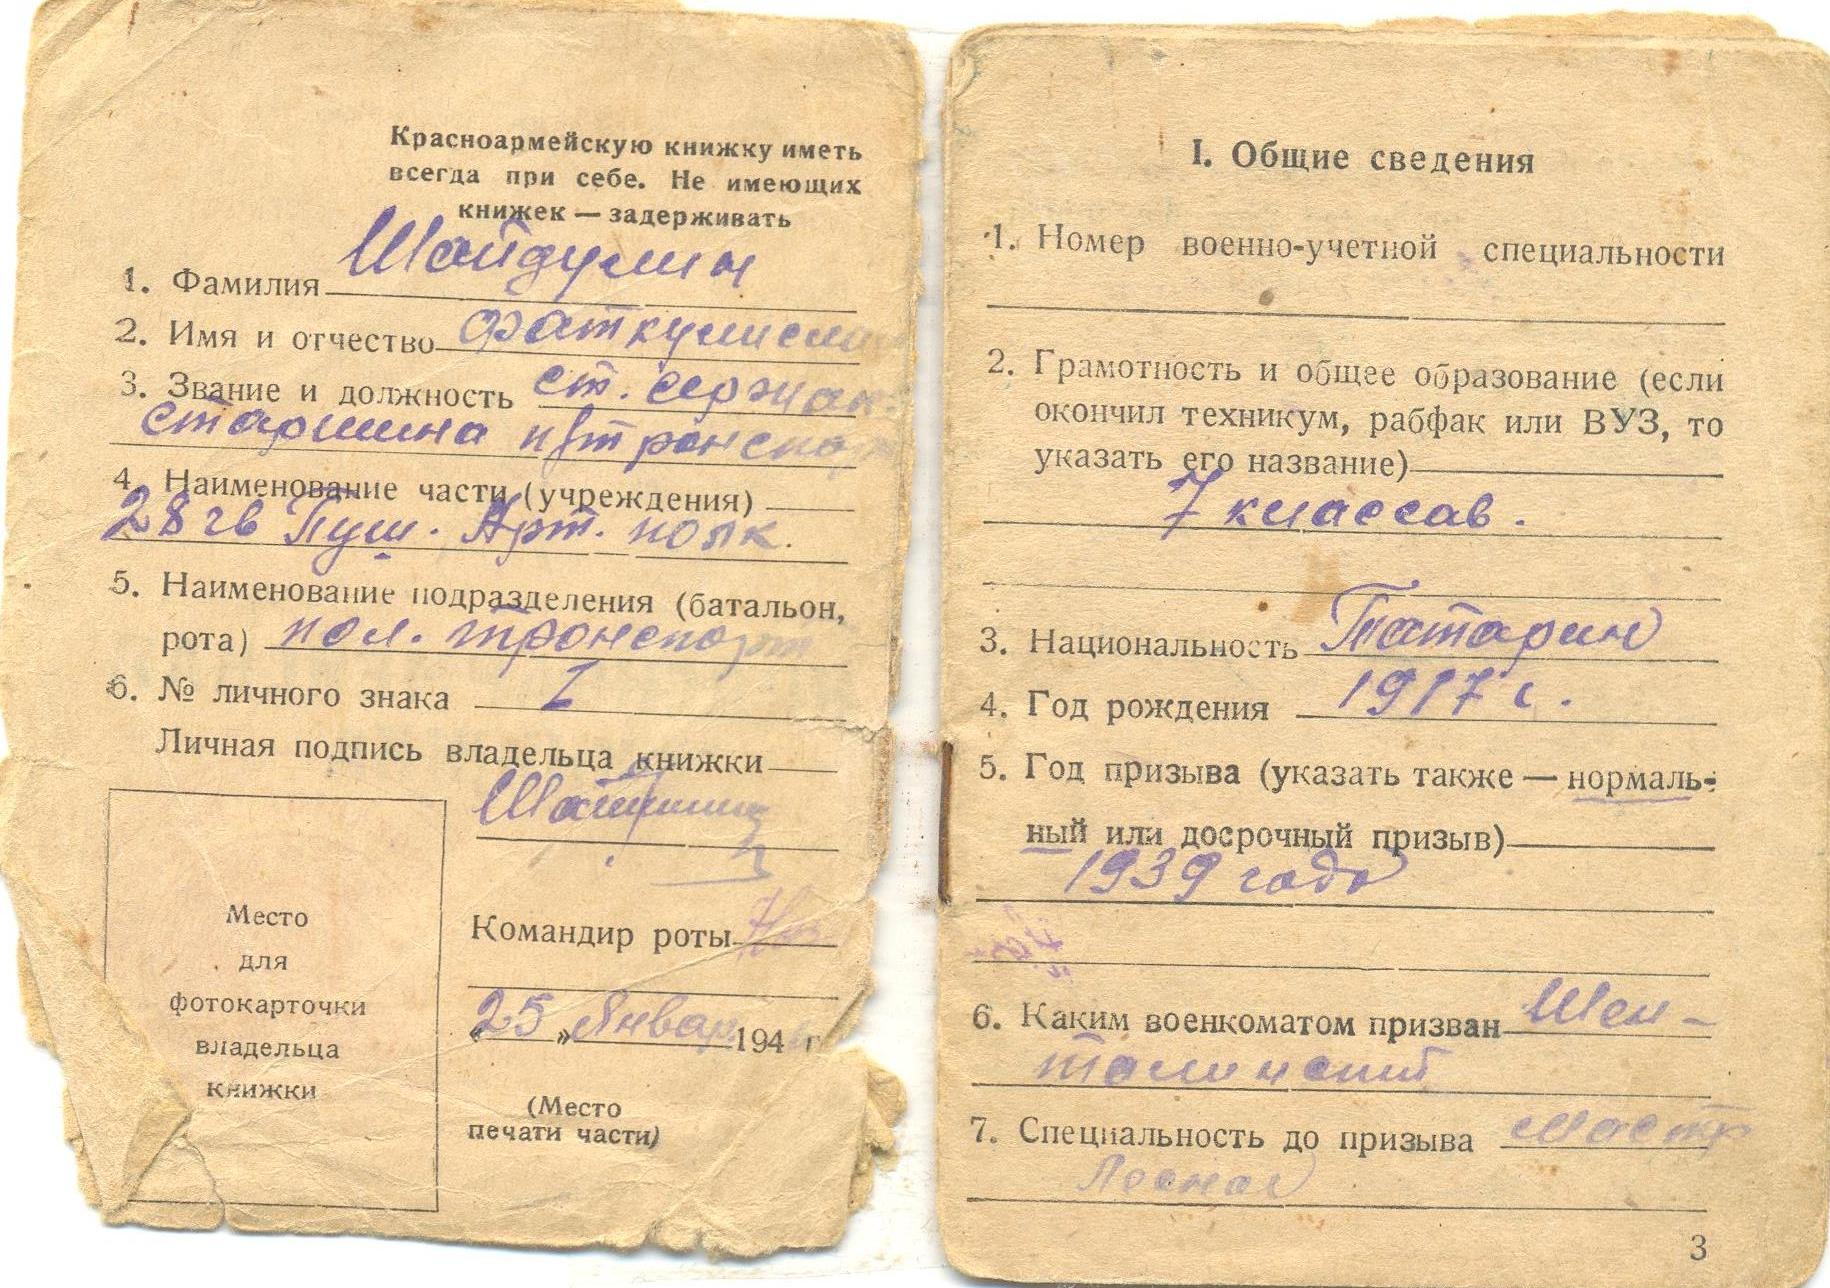 Красноармейскую книжку иметь
всегда при себе. Не имеющих
книжек — задерживать
1. Фамилия Шайдулин
2. Имя и отчество
3. Звание и должность ст. сержан
старшина
4. Наименование части (учреждения)
28 гв Пуш. Арт. полк.
5. Наименование подразделения (батальон,
рота) пол. транспорт
6. № личного знака I
Личная подпись владельца книжки
Командир роты
«25» Январ 194 г
Место
для
фотокарточки
владельца
книжки
(Место
печати части)
I. Общие сведения
1. Номер военно-учетной специальности
2. Грамотность и общее образование (если
окончил техникум, рабфак или ВУЗ, то
указать его название)
7 классав.
3. Национальность Татарин
4. Год рождения 1917 г.
5. Год призыва (указать также — нормаль-
ный или досрочный призыв)
1939 года
6. Каким военкоматом призван Шен-
талинский
7. Специальность до призыва
3